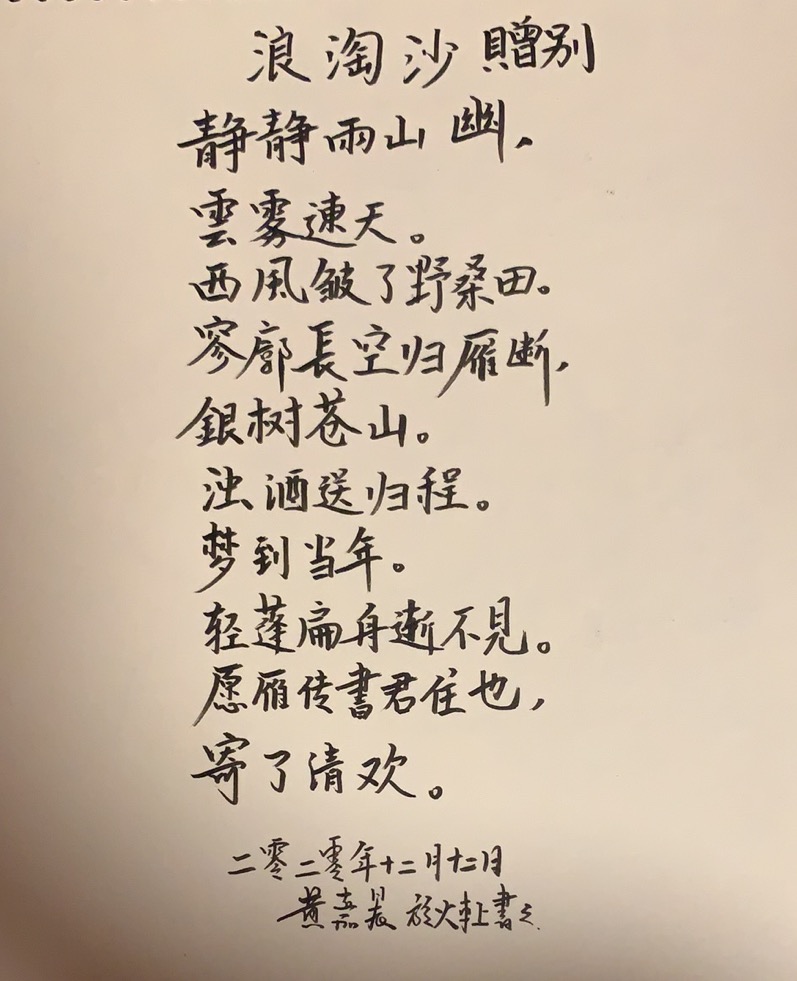 浪淘沙 贈别
静静雨山幽，
雲雾連天。
西風皱了野桑田。
寥廓長空归雁断，
銀树苍山。
浊酒送归程。
梦到当年。
轻蓬扁舟逝不見。
愿雁传書君住也，
寄了清欢。
二零二零年十二月十二日
黄嘉晨 於火車上書之.